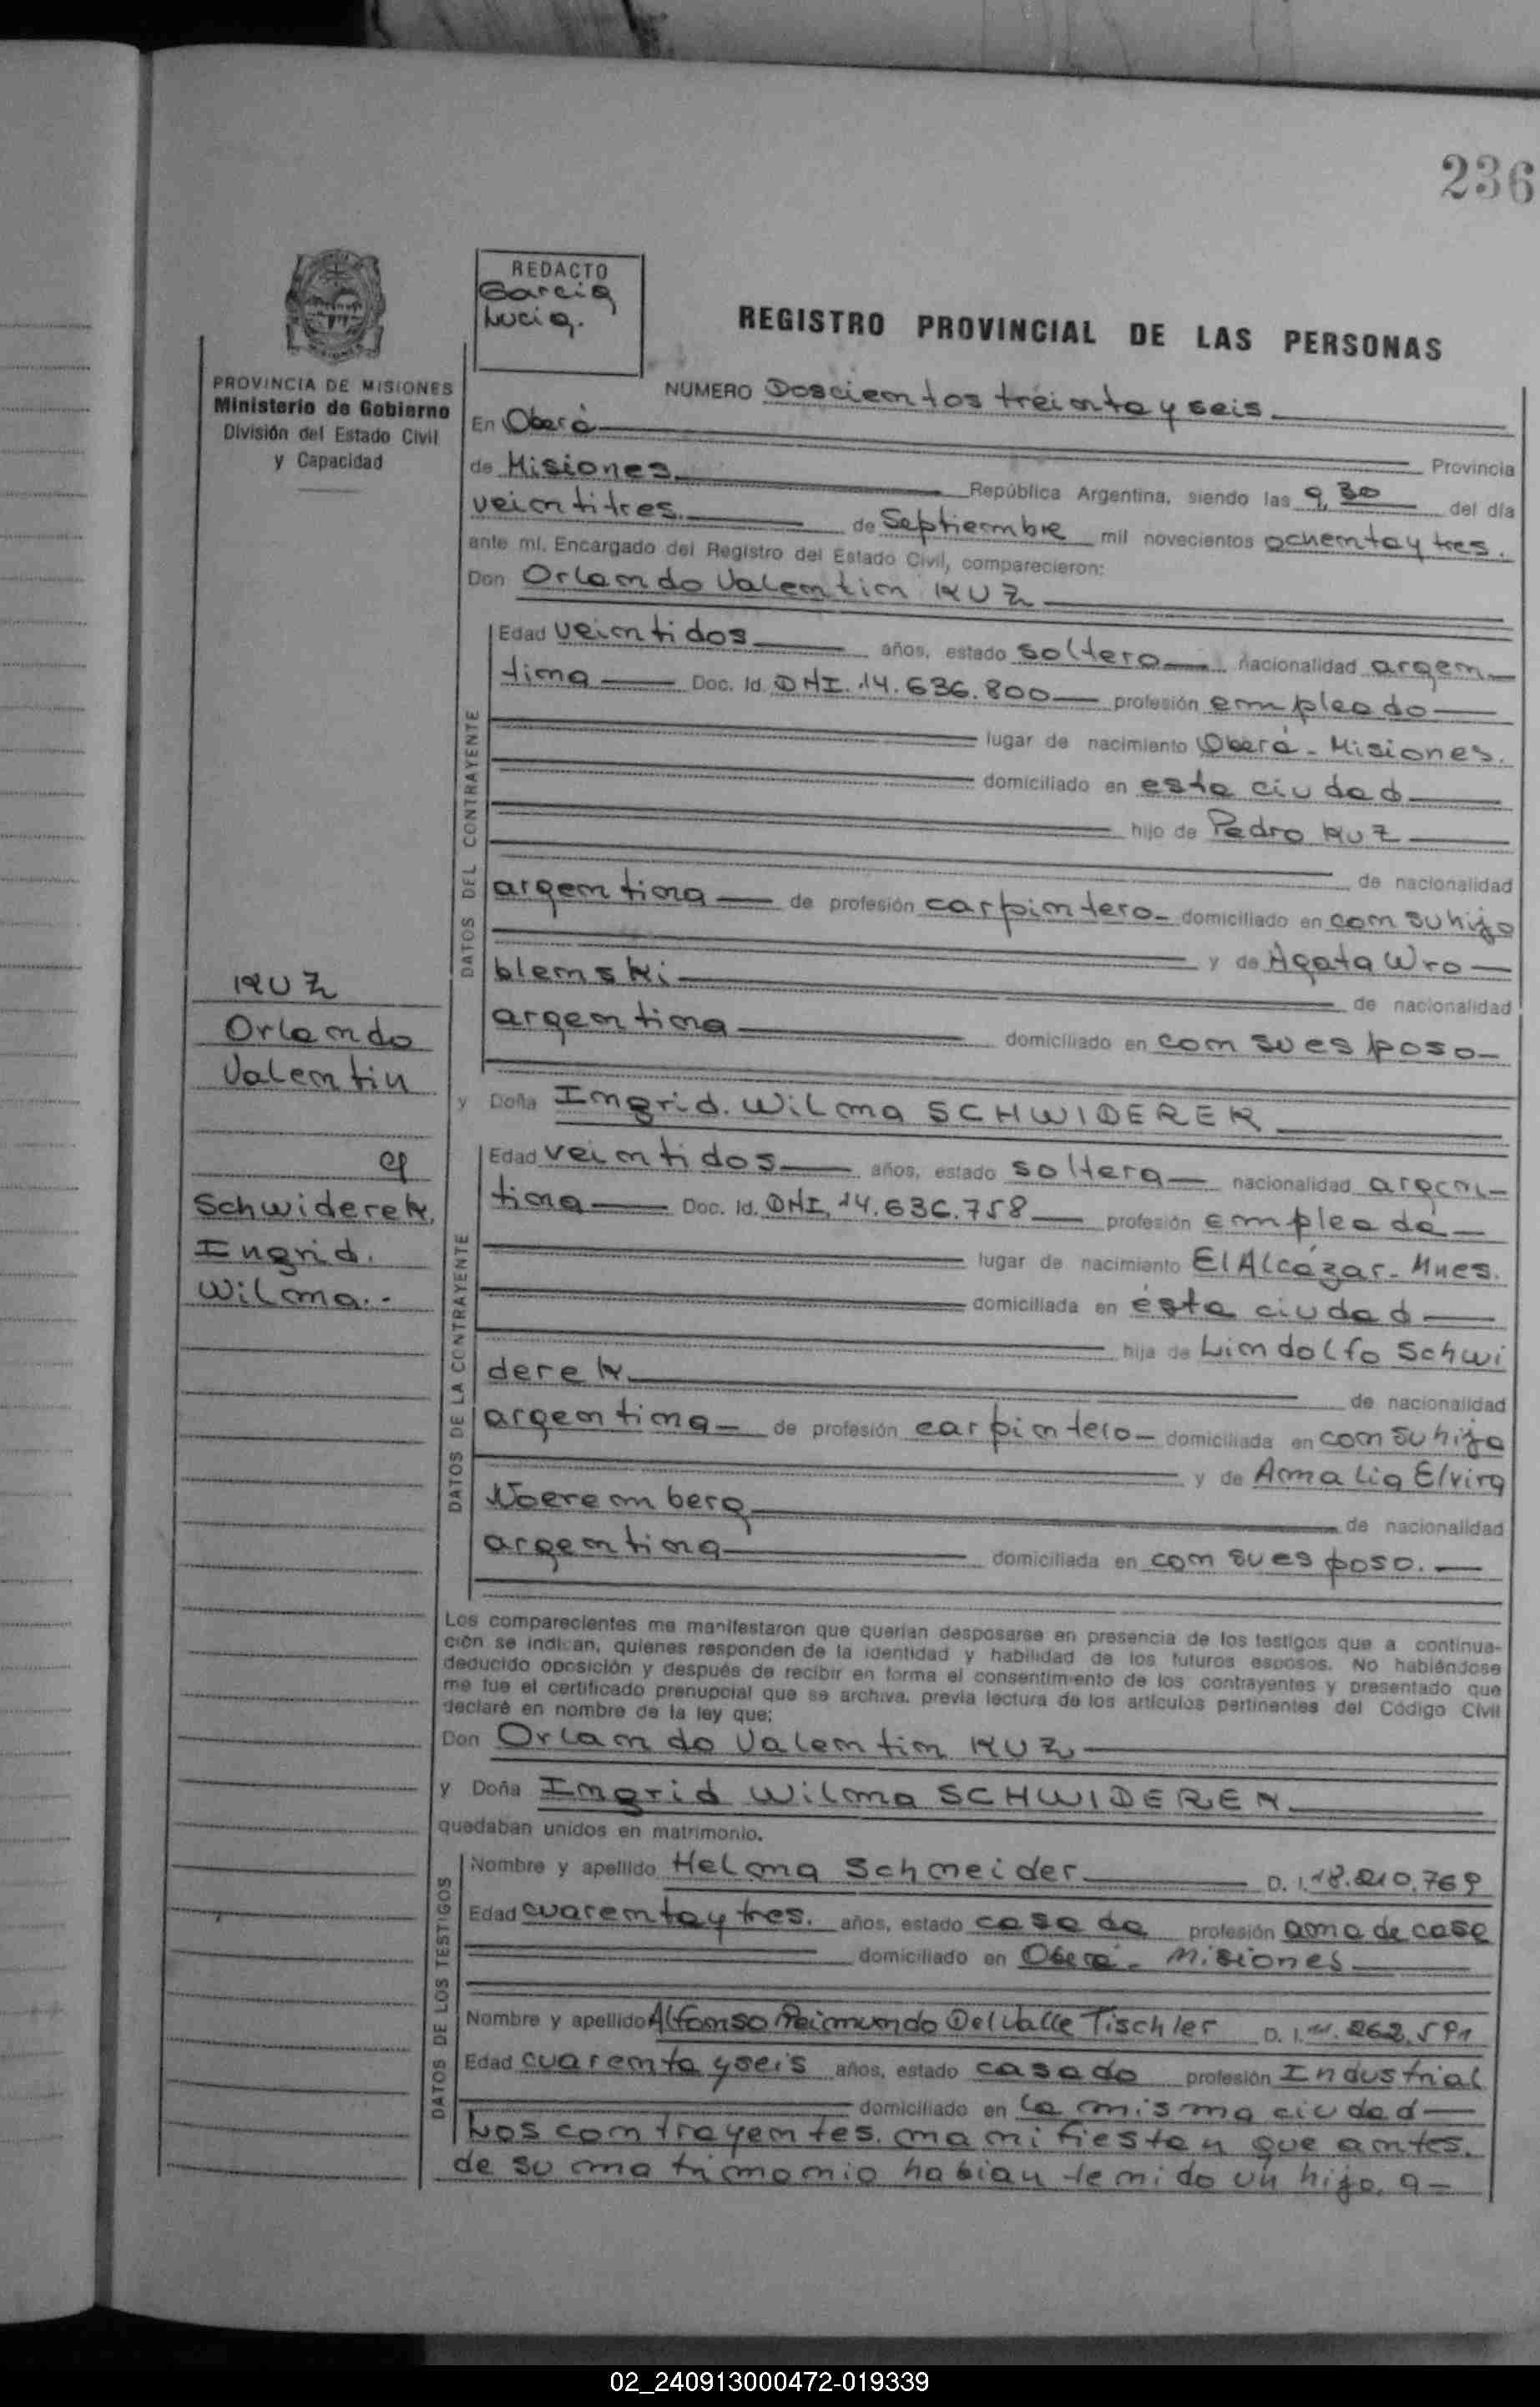 236
REDACTO
Garcia
Lucia.
REGISTRO PROVINCIAL DE LAS PERSONAS
PROVINCIA DE MISIONES
Ministerio de Gobierno
División del Estado Civil
y Capacidad
NUMERO Doscientos treinta y seis
En Oberá Provincia
de Misiones República Argentina, siendo las 9,30 del día
veintitres de Septiembre mil novecientos ochenta y tres.
ante mí, Encargado del Registro del Estado Civil, comparecieron:
Don Orlando Valentin KUZ
DATOS DEL CONTRAYENTE
Edad veintidos años, estado soltero nacionalidad argen
tina Doc. Id. DNI. 14.636.800 profesión empleado
lugar de nacimiento Oberá - Misiones.
domiciliado en esta ciudad
hijo de Pedro Kuz
de nacionalidad
argentina de profesión carpintero domiciliado en con su hijo
y de Agata Wro
blenski de nacionalidad
argentina domiciliado en con su esposo
KUZ
Orlando
Valentin
Schwiderek,
Ingrid.
Wilma.-
y Doña Ingrid. Wilma SCHWIDEREK
DATOS DE LA CONTRAYENTE
Edad veintidos años, estado soltera nacionalidad argen
tina Doc. Id. DNI, 14.636.758 profesión empleada
lugar de nacimiento El Alcázar - Mnes.
domiciliada en ésta ciudad
hija de Lindolfo Schwi
derek. de nacionalidad
argentina de profesión carpintero domiciliada en con su hija
y de Amalia Elvira
Noeremberg de nacionalidad
argentina domiciliada en con su esposo.
Los comparecientes me manifestaron que querían desposarse en presencia de los testigos que a continua-
ción se indican, quienes responden de la identidad y habilidad de los futuros esposos. No habiéndose
deducido oposición y después de recibir en forma el consentimiento de los contrayentes y presentado que
me fue el certificado prenupcial que se archiva, previa lectura de los artículos pertinentes del Código Civil
declaré en nombre de la ley que:
Don Orlando Valentin KUZ
y Doña Ingrid Wilma SCHWIDEREK
quedaban unidos en matrimonio.
DATOS DE LOS TESTIGOS
Nombre y apellido Helma Schneider D. I. 18.210.769
Edad cuarenta y tres. años, estado casada profesión ama de casa
domiciliado en Oberá - Misiones
Nombre y apellido Alfonso Reimundo Del Valle Tischler D. I. 262.591
Edad cuarenta y seis años, estado casado profesión Industrial
domiciliado en la misma ciudad
Los contrayentes. manifiestan que antes.
de su matrimonio habian tenido un hijo, a-
02_240913000472-019339